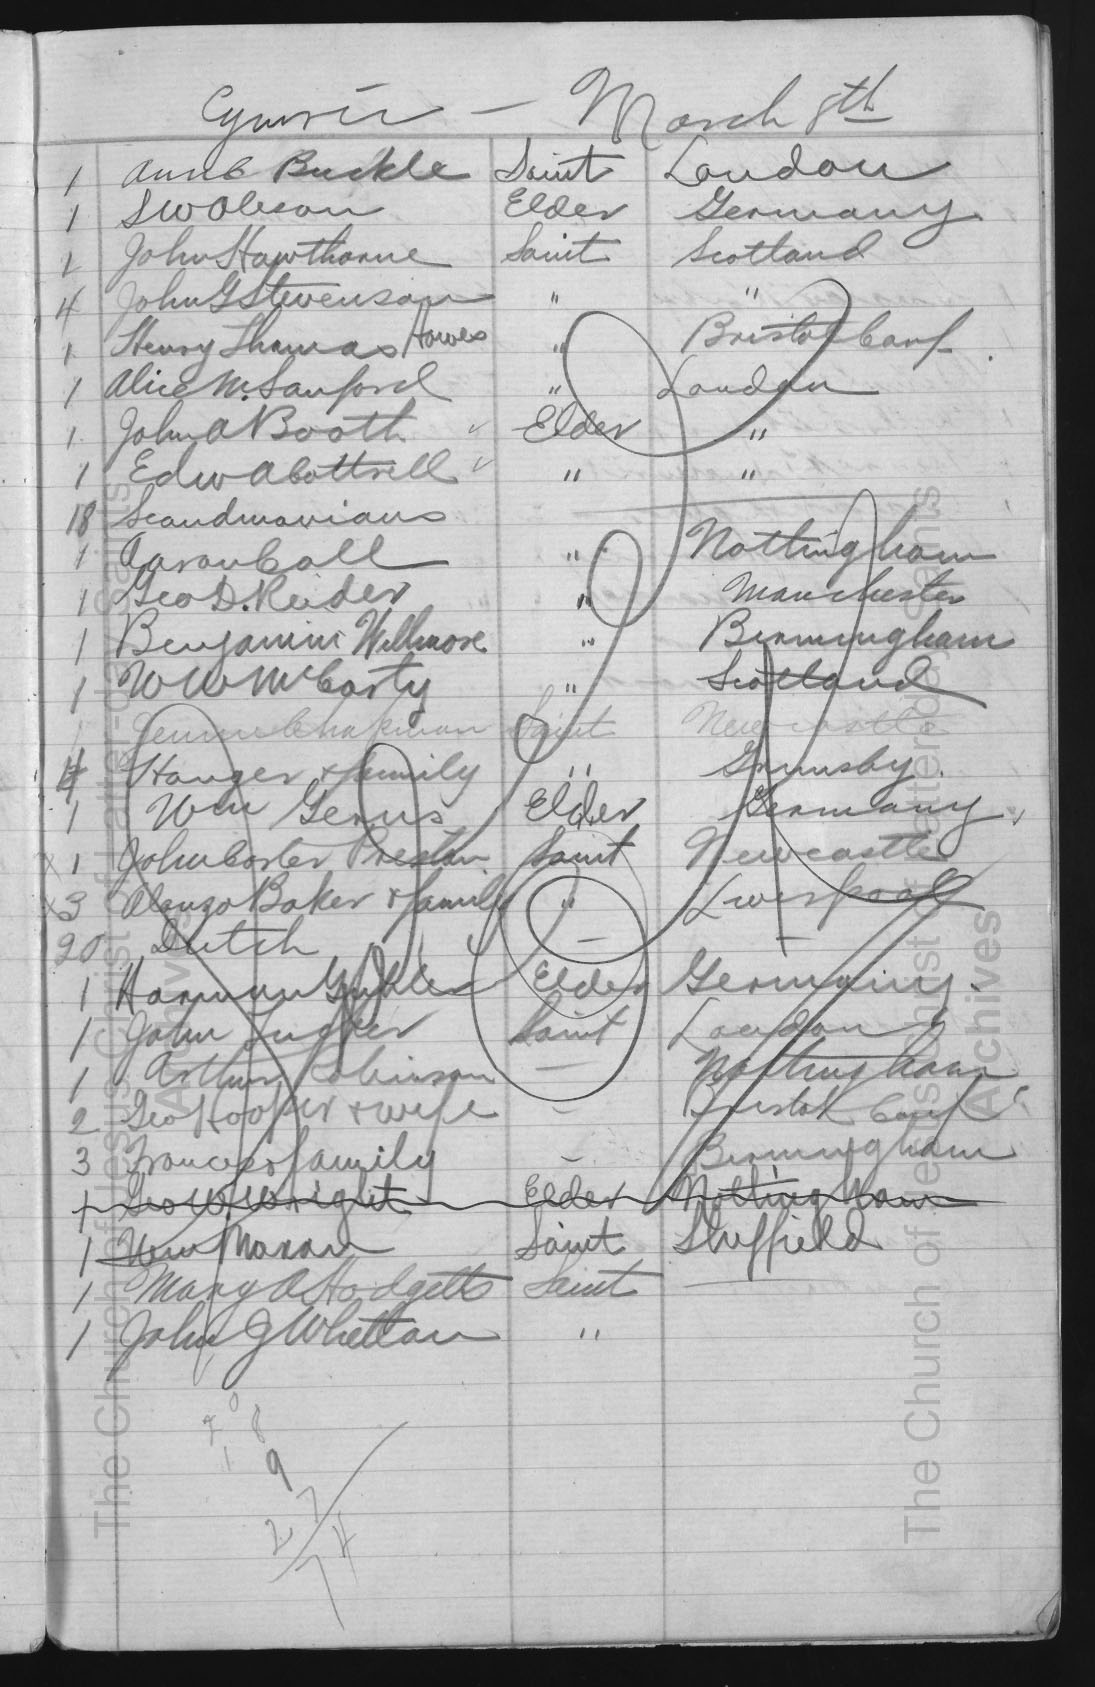 Cymric — March 8th
1 Ann C Buckle Saint London
1 S W Oleson Elder Germany
1 John Hawthorne Saint Scotland
4 John G Stevenson " "
1 Henry Thomas Howes " Bristol Conf.
1 Alice M. Sanford " London
1 John A Booth Elder "
1 Edw A Cottrell " "
18 Scandinavians
1 Aaron Call " Nottingham
1 Geo D. Reider " Manchester
1 Benjamin Willmore " Birmingham
1 W W McCarty " Scotland
1 Jennie Chapman Saint Newcastle
4 Hanger & family " Grimsby.
1 Wm Gerns Elder Germany
x 1 John Carter Preston Saint Newcastle
x 3 Alonzo Baker & family " Liverpool
20 Dutch —
1 Harman Elder Germany.
1 John Saint London
1 Arthur Robinson — Nottingham
2 Geo Hooper & wife – Bristol Conf
3 Frances & family – Birmingham
1 Geo W Wright Elder Nottingham
1 Wm Saint Sheffield
1 Mary A Hodgetts Saint
1 John G Whettan "
9
27
74
The Church of Jesus Christ of Latter-day Saints
Archives
The Church of Jesus Christ of Latter-day Saints
Archives